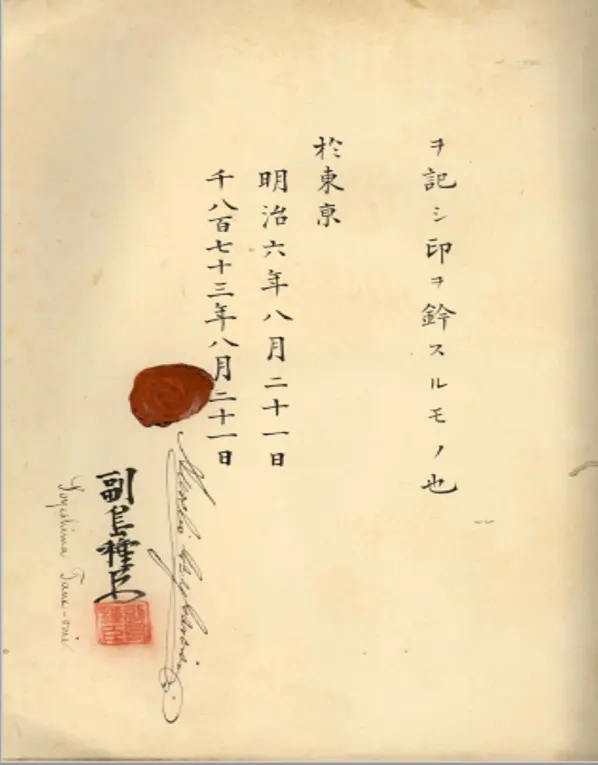 ヲ記シ印ヲ鈐スルモノ也
於東亰
明治六年八月二十一日
千八百七十三年八月二十一日
副島種臣
Soyeshima Tane-omi